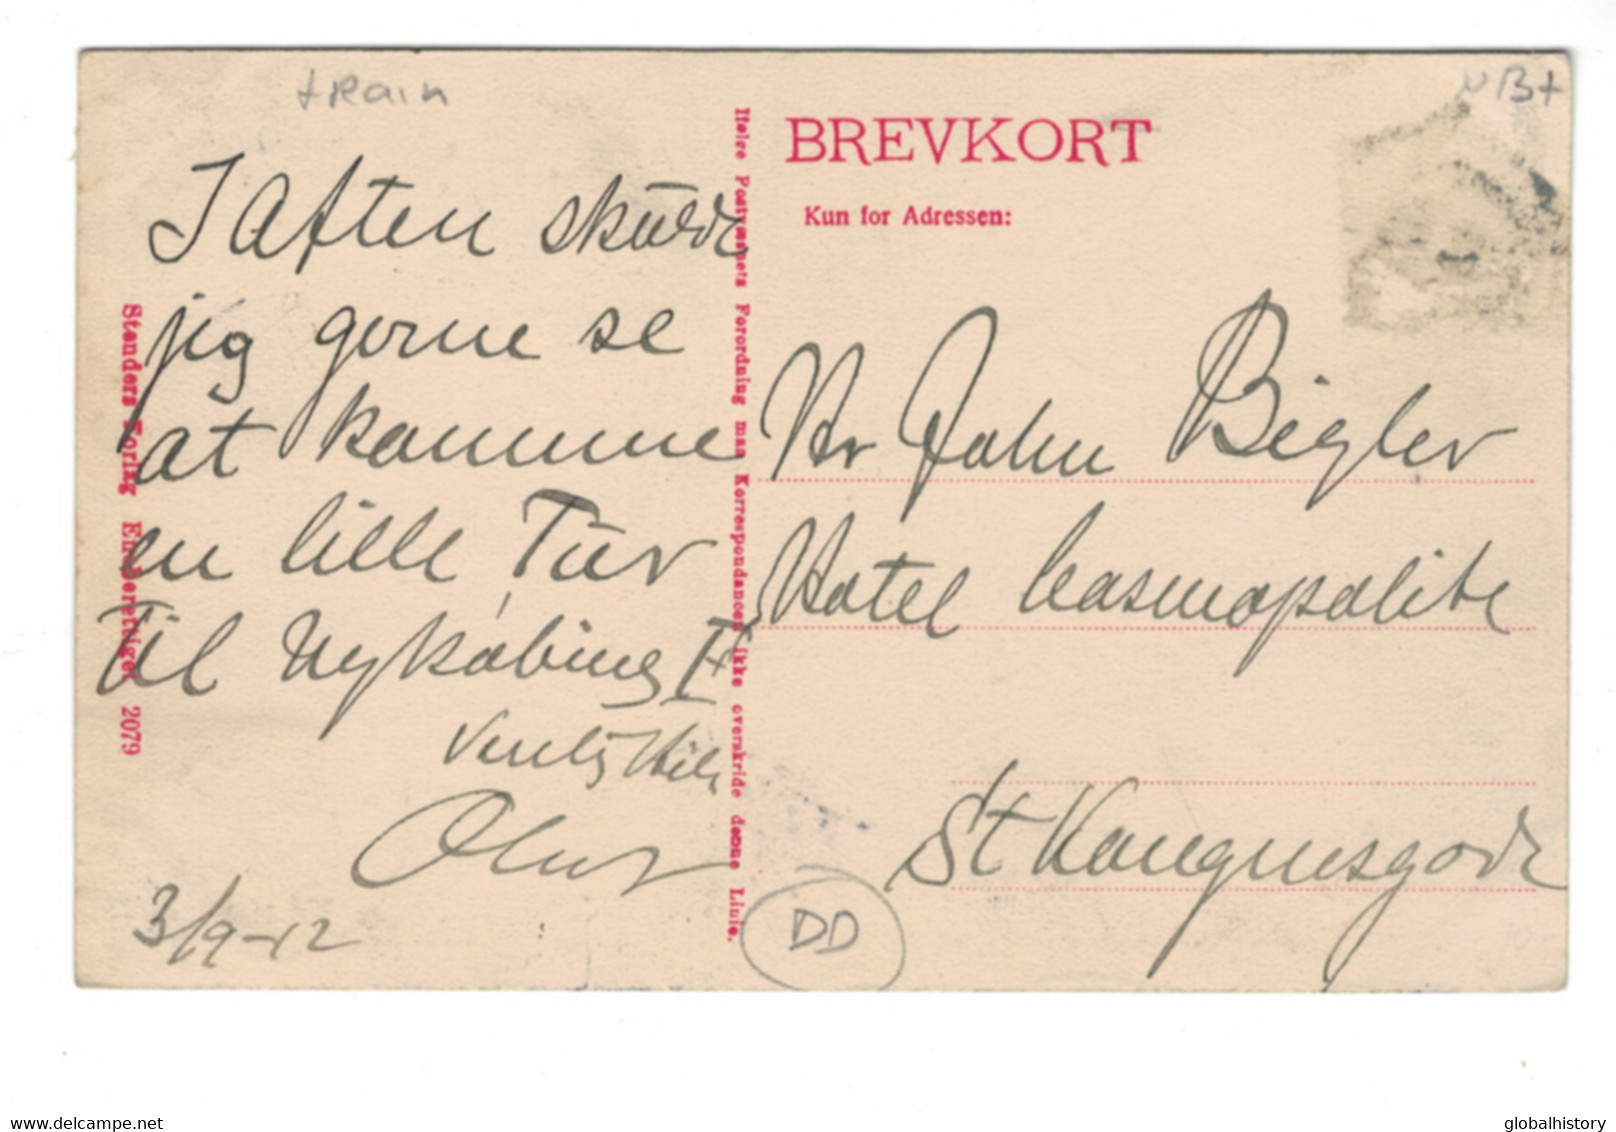 train
VBt
BREVKORT
Kun for Adressen:
I Aften skulde
jeg gerne se
at komme
en lille Tur
Til Nykøbing F
Venlig Hilsen
Oluf
3/9-12
Hr John Bigler
Hotel Cosmopolite
St Kongensgade
DD
Ifølge Postvæsenets Forordning maa Korrespondancen ikke overskride denne Linie.
Stenders Forlag Eneberettiget 2079
globalhistory